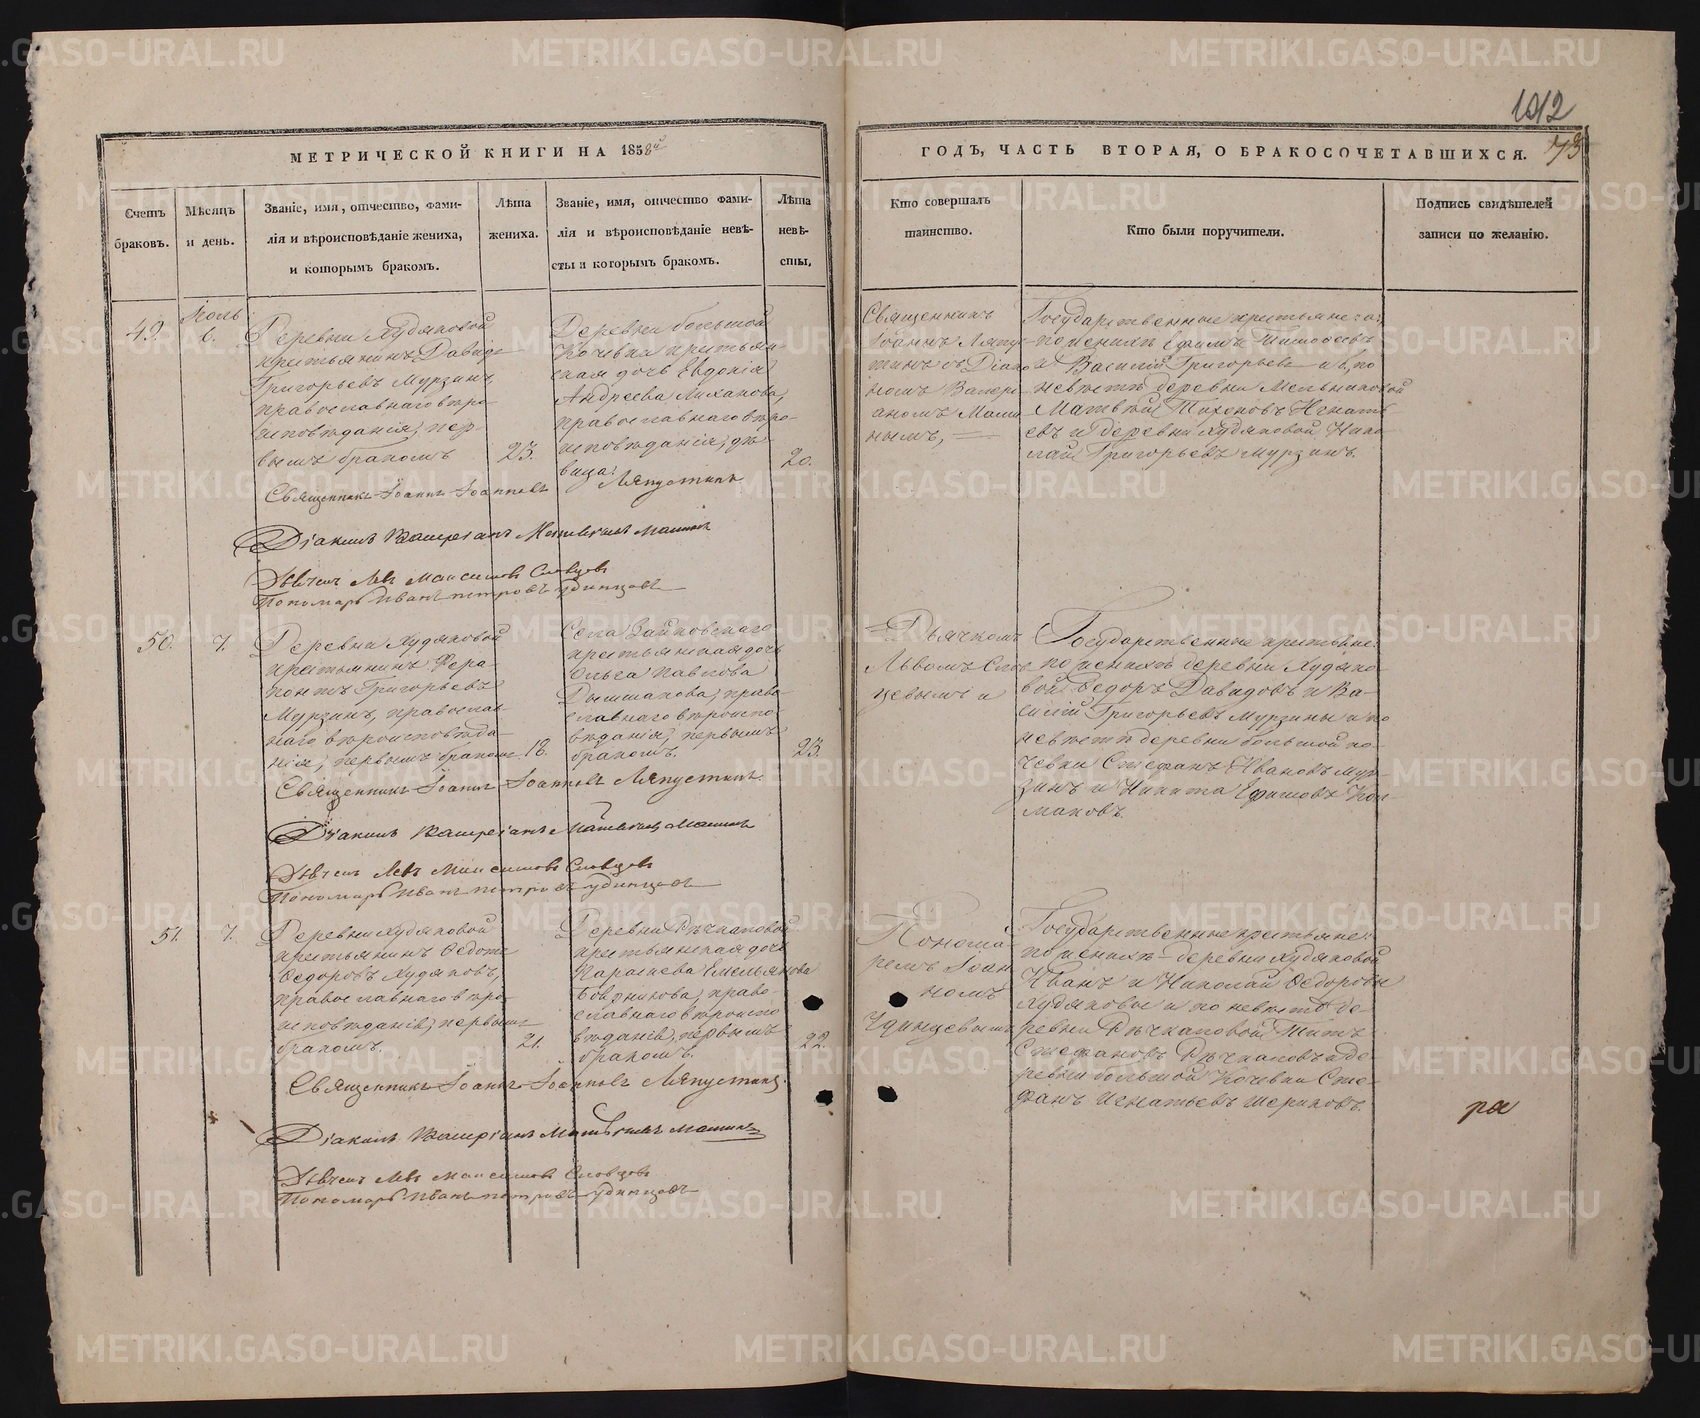 1012
73
МЕТРИЧЕСКОЙ КНИГИ НА 1858й
ГОДЪ, ЧАСТЬ ВТОРАЯ, О БРАКОСОЧЕТАВШИХСЯ.
Счетъ
браковъ.
Мѣсяцъ
и день.
Званіе, имя, отчество, фами-
лія и вѣроисповѣданіе жениха,
и которымъ бракомъ.
Лѣта
жениха.
Званіе, имя, отчество фами-
лія и вѣроисповѣданіе невѣ-
сты и которымъ бракомъ.
Лѣта
невѣ-
сты.
Кто совершалъ
таинство.
Кто были поручители.
Подпись свидѣтелей
записи по желанію.
49.
6.
Деревни Худяковой
крестьянинъ Давидъ
Григорьевъ Мурзинъ,
православнаго вѣро
исповѣданія, пер-
вымъ бракомъ
23.
Деревни большой
Кочевки крестьян
ская дочь Евдокія
Андреева
православнаго вѣро-
исповѣданія, дѣ
вица.
20.
Священникъ
Іоаннъ Ляпу
стинъ съ Діако
номъ Валері
аномъ
нымъ,
Государственные крестьяне:
по женихѣ Тимофеевъ
и Василій Григорьевъ по
невѣстѣ деревни Мельниковой
Матвѣй Тихоновъ Игнать
евъ и деревни Худяковой Нико
лай Григорьевъ Мурзинъ.
Священникъ Іоаннъ Іоанновъ Ляпустинъ
Діаконъ Валеріанъ
Дьячекъ Левъ Максимовъ Словцовъ
Пономарь Иванъ Петровъ Удинцовъ
50.
7.
Деревни Худяковой
крестьянинъ Фера-
понтъ Григорьевъ
Мурзинъ, православ-
наго вѣроисповѣда-
нія, первымъ бракомъ
18.
Села Зайковскаго
крестьянская дочь
Ольга Павлова
право-
славнаго вѣроиспо-
вѣданія, первымъ
бракомъ.
23.
Дьячкомъ
Львомъ Слов
цевымъ и
Государственные крестьяне:
по женихѣ деревни Худяко-
вой Ѳедоръ Давидовъ и Ва-
силій Григорьевъ Мурзины и по
невѣстѣ деревни большой Ко-
чевки Стефанъ Ивановъ Мур-
зинъ и Никита Ефимовъ Кол-
маковъ.
Священникъ Іоаннъ Іоанновъ Ляпустинъ.
Діаконъ Валеріанъ
Дьячекъ Левъ Максимовъ Словцовъ
Пономарь Иванъ Петровъ Удинцовъ
51.
7.
Деревни Худяковой
крестьянинъ Ѳедотъ
Ѳедоровъ Худяковъ,
православнаго вѣро-
исповѣданія, первымъ
бракомъ.
21.
Деревни Рѣчкаловой
крестьянская дочь
Емельянова
право-
славнаго вѣроиспо
вѣданія, первымъ
бракомъ.
22.
Понома-
ремъ Іоан
номъ
Удинцевымъ
Государственные крестьяне:
по женихѣ - деревни Худяковой
Иванъ и Николай Ѳедоровы
Худяковы и по невѣстѣ де-
ревни Рѣчкаловой Титъ
Стефановъ Рѣчкаловъ и де
ревни большой Кочевки Сте-
фанъ Игнатьевъ
Священникъ Іоаннъ Іоанновъ Ляпустинъ.
Діаконъ Валеріанъ
Дьячекъ Левъ Максимовъ Словцовъ
Пономарь Иванъ Петровъ Удинцовъ
METRIKI.GASO-URAL.RU